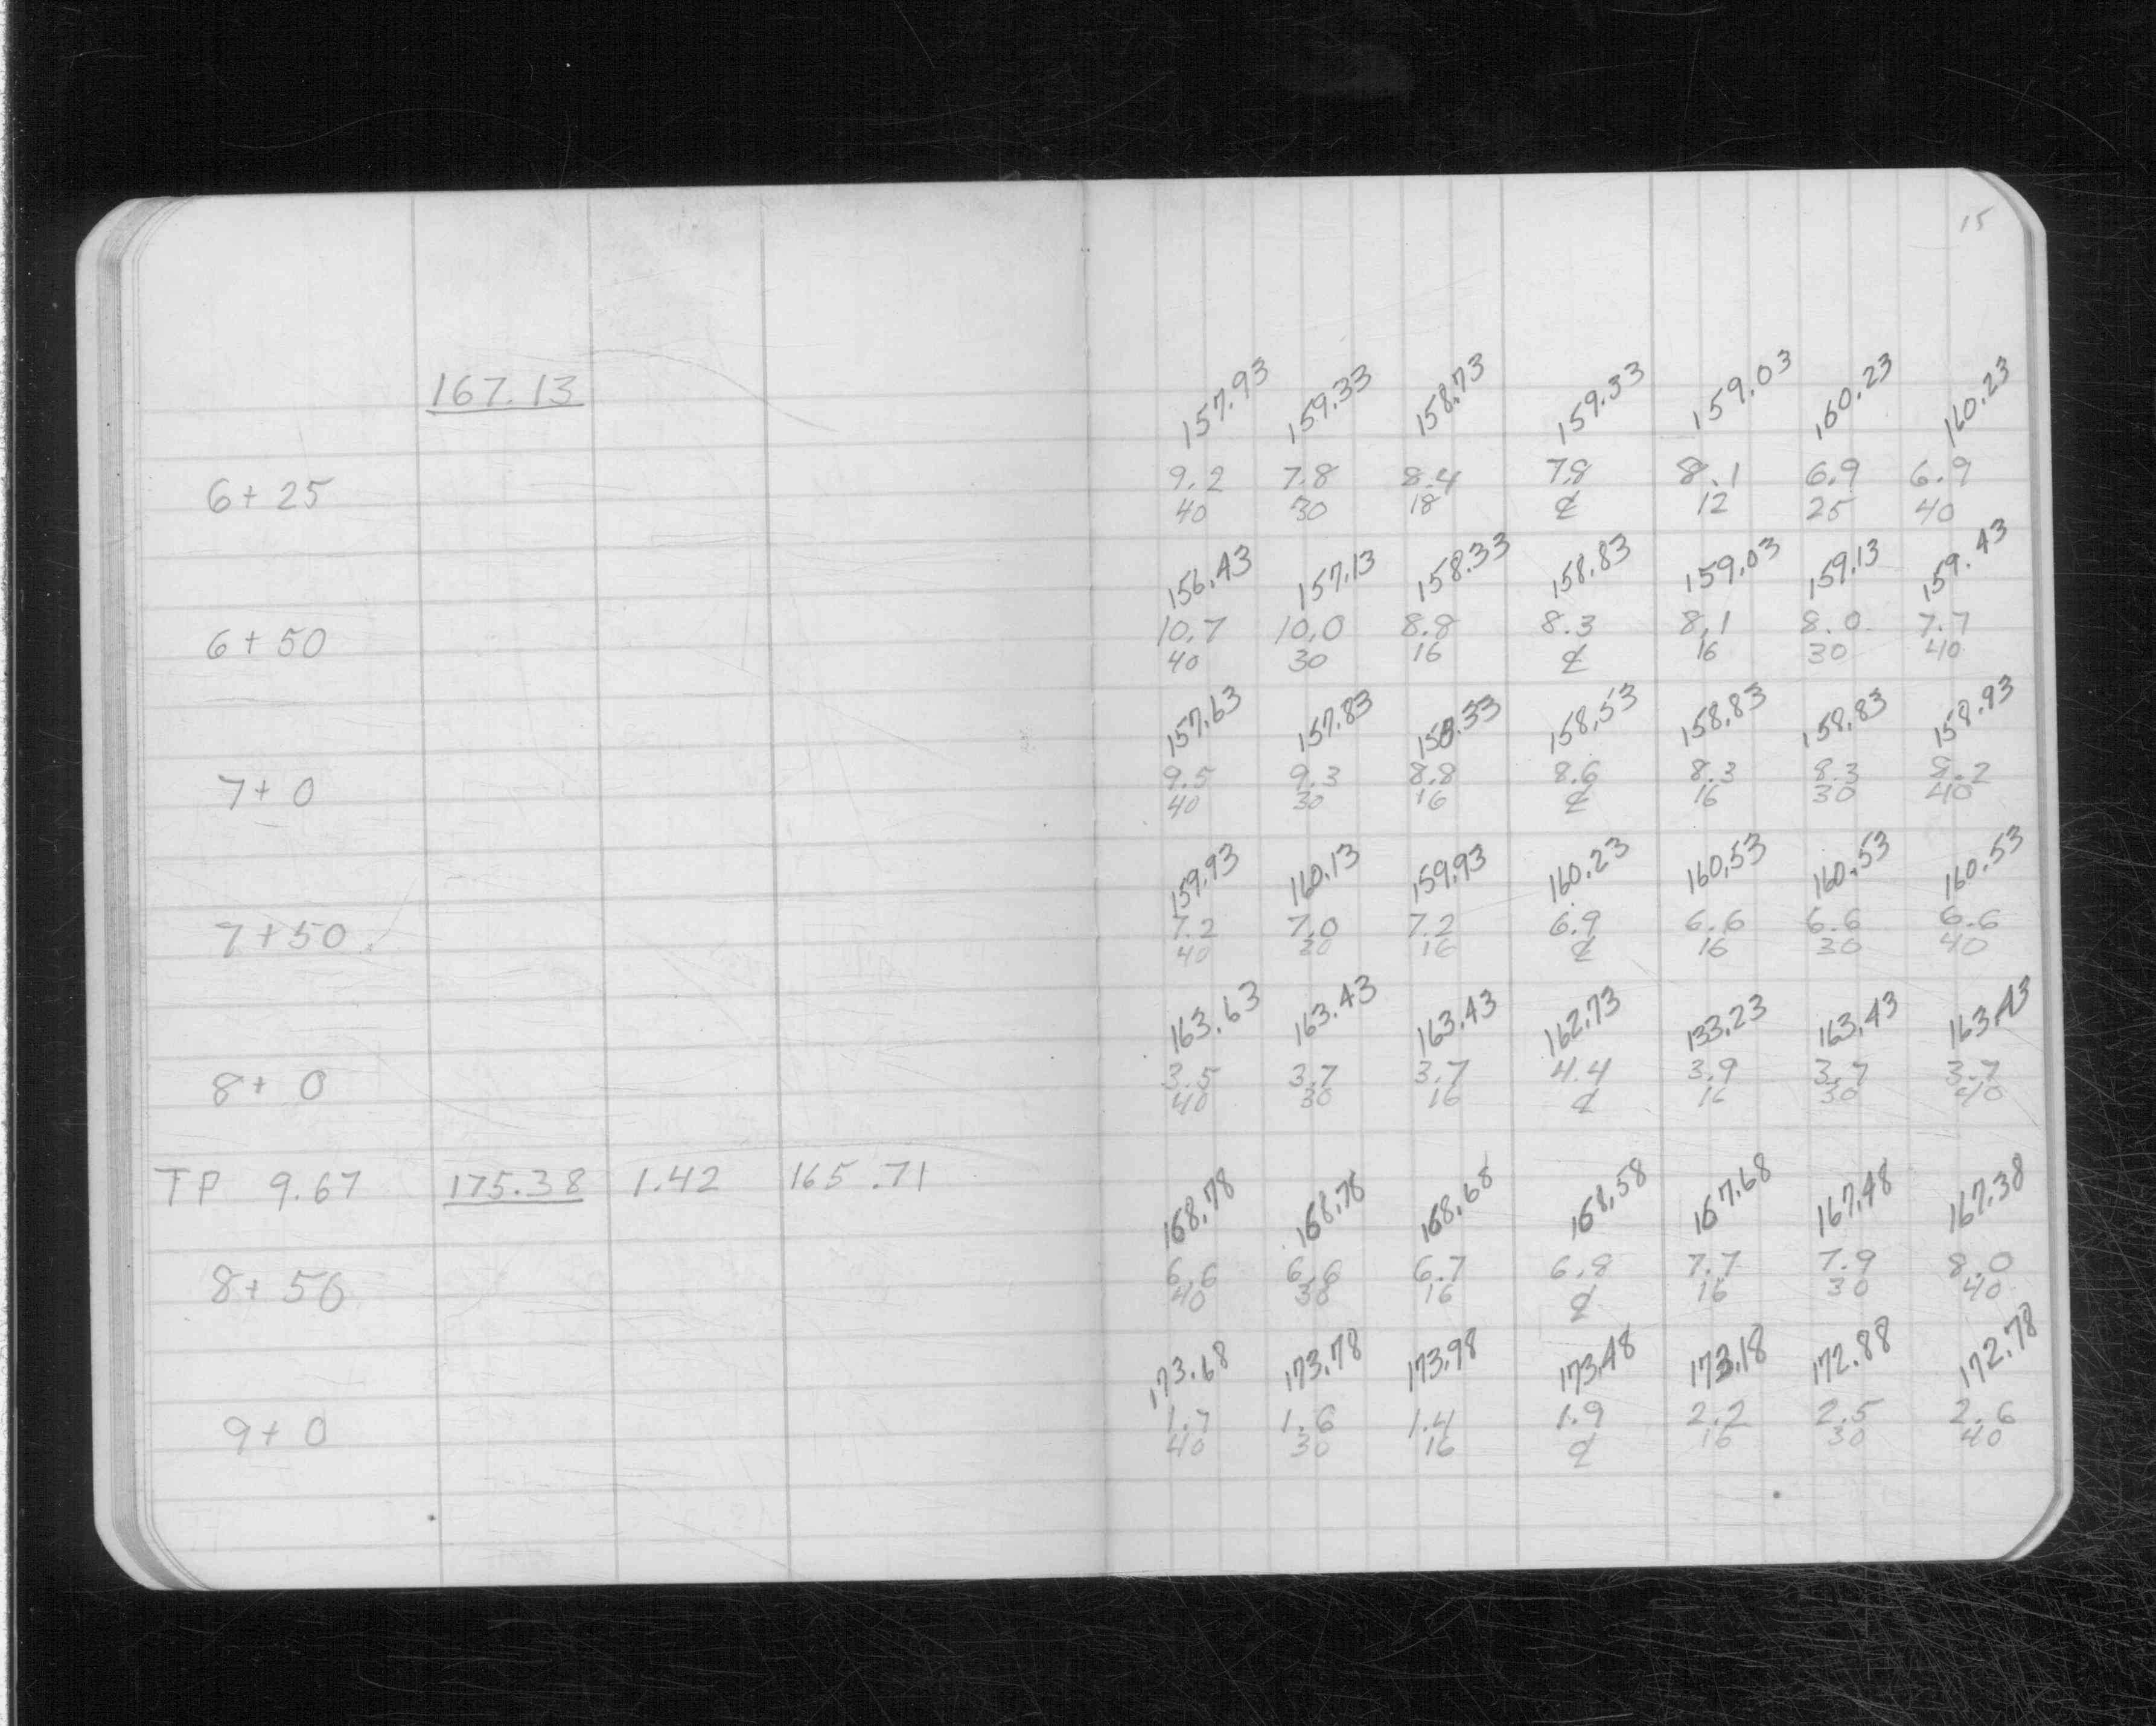 15
167.13 157.93 159.33 158.73 159.33 159.03 160.23 160.23
6+25 9.2 7.8 8.4 7.8 8.1 6.9 6.9
40 30 18 ℄ 12 25 40
156.43 157.13 158.33 158.83 159.03 159.13 159.43
6+50 10.7 10.0 8.8 8.3 8.1 8.0 7.7
40 30 16 ℄ 16 30 40
157.63 157.83 158.33 158.53 158.83 158.83 158.93
7+0 9.5 9.3 8.8 8.6 8.3 8.3 8.2
40 30 16 ℄ 16 30 40
159.93 160.13 159.93 160.23 160.53 160.53 160.53
7+50 7.2 7.0 7.2 6.9 6.6 6.6 6.6
40 30 16 ℄ 16 30 40
163.63 163.43 163.43 162.73 133.23 163.43 163.43
8+0 3.5 3.7 3.7 4.4 3.9 3.7 3.7
40 30 16 ℄ 16 30 40
TP 9.67 175.38 1.42 165.71 168.78 168.78 168.68 168.58 167.68 167.48 167.38
8+50 6.6 6.6 6.7 6.8 7.7 7.9 8.0
40 30 16 ℄ 16 30 40
173.68 173.78 173.98 173.48 173.18 172.88 172.78
9+0 1.7 1.6 1.4 1.9 2.2 2.5 2.6
40 30 16 ℄ 16 30 40